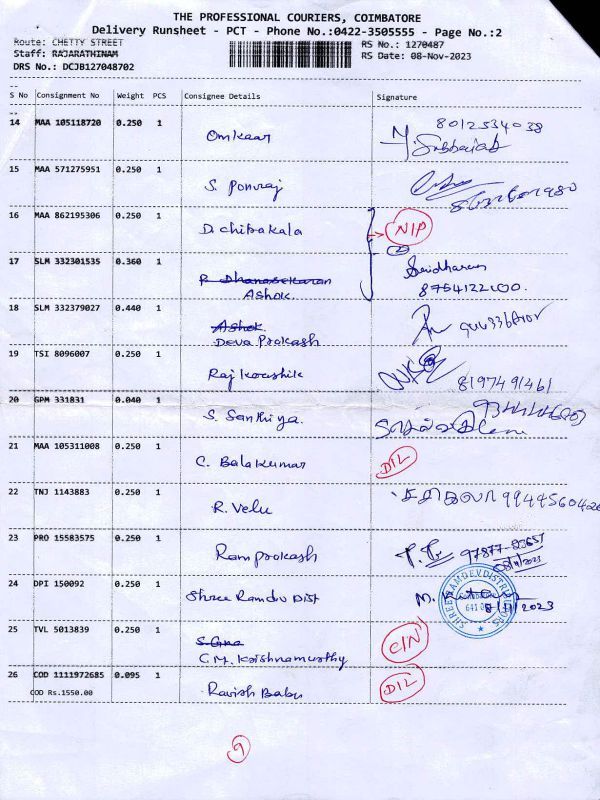 THE PROFESSIONAL COURIERS, COIMBATORE
Delivery Runsheet - PCT - Phone No.:0422-3505555 - Page No.:2
Route: CHETTY STREET RS No.: 1270487
Staff: RAJARATHINAM RS Date: 08-Nov-2023
DRS No.: DCJB127048702
S No Consignment No Weight PCS Consignee Details Signature
14 MAA 105118720 0.250 1 Omkaar 8012534038
15 MAA 571275951 0.250 1 S. Ponraj
16 MAA 862195306 0.250 1 D. chitrakala NIP
17 SLM 332301535 0.360 1 R Dhanasekaran Sridharan
Ashok. 8754122100.
18 SLM 332379027 0.440 1 Ashok.
Deva Prakash
19 TSI 8096007 0.250 1 Raj Koushik 8197491461
20 GPM 331831 0.040 1 S. Santhiya.
21 MAA 105311008 0.250 1 C. Balakumar DIL
22 TNJ 1143883 0.250 1 R. Velu
23 PRO 15583575 0.250 1 Ram prakash 97877-83657
08/11/2023
24 DPI 150092 0.250 1 Shree Ramdev Dist M.
SHREE RAMDEV DISTRIBUTORS
8/11/2023
25 TVL 5013839 0.250 1 C/N
C.M. Krishnamurthy
26 COD 1111972685 0.095 1 Ravish Babu DIL
COD Rs.1550.00
9